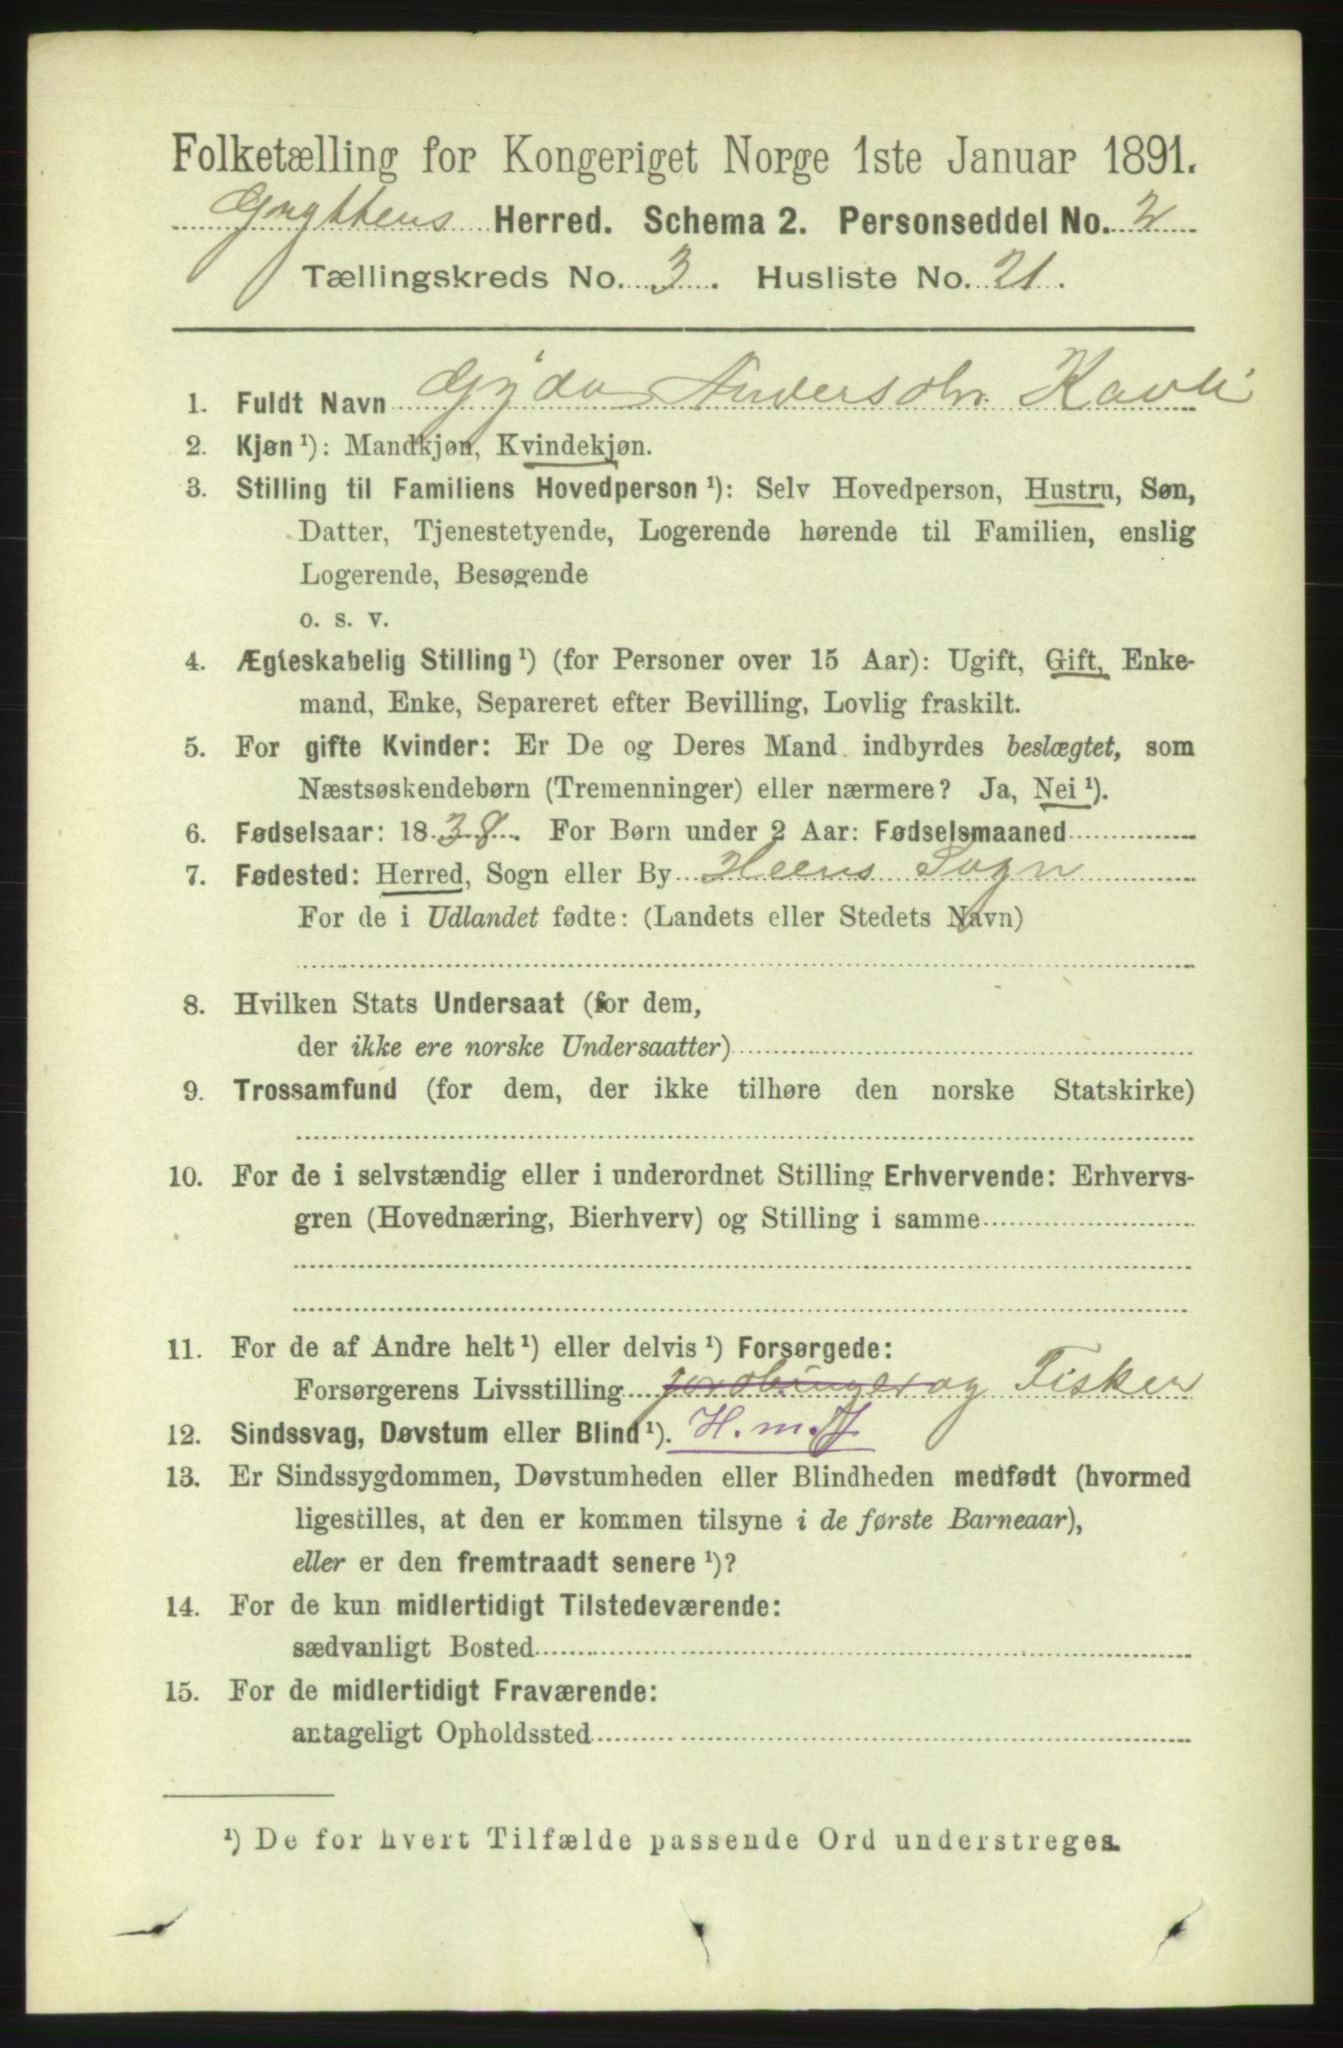 Folketælling for Kongeriget Norge 1ste Januar 1891.
Gryttens Herred. Schema 2. Personseddel No. 2
Tællingskreds No. 3. Husliste No. 21.
1. Fuldt Navn Gjda Andersdtr. Kavli
2. Kjøn ¹): Mandkjøn, Kvindekjøn.
3. Stilling til Familiens Hovedperson ¹): Selv Hovedperson, Hustru, Søn,
Datter, Tjenestetyende, Logerende hørende til Familien, enslig
Logerende, Besøgende
o. s. v.
4. Ægteskabelig Stilling ¹) (for Personer over 15 Aar): Ugift, Gift, Enke-
mand, Enke, Separeret efter Bevilling, Lovlig fraskilt.
5. For gifte Kvinder: Er De og Deres Mand indbyrdes beslægtet, som
Næstsøskendebørn (Tremenninger) eller nærmere? Ja, Nei ¹).
6. Fødselsaar: 1838. For Børn under 2 Aar: Fødselsmaaned
7. Fødested: Herred, Sogn eller By Heens Sogn
For de i Udlandet fødte: (Landets eller Stedets Navn)
8. Hvilken Stats Undersaat (for dem,
der ikke ere norske Undersaatter)
9. Trossamfund (for dem, der ikke tilhøre den norske Statskirke)
10. For de i selvstændig eller i underordnet Stilling Erhvervende: Erhvervs-
gren (Hovednæring, Bierhverv) og Stilling i samme
11. For de af Andre helt ¹) eller delvis ¹) Forsørgede:
Forsørgerens Livsstilling og Fisker
12. Sindssvag, Døvstum eller Blind ¹). H. m.
13. Er Sindssygdommen, Døvstumheden eller Blindheden medfødt (hvormed
ligestilles, at den er kommen tilsyne i de første Barneaar),
eller er den fremtraadt senere ¹)?
14. For de kun midlertidigt Tilstedeværende:
sædvanligt Bosted
15. For de midlertidigt Fraværende:
antageligt Opholdssted
¹) De for hvert Tilfælde passende Ord understreges.